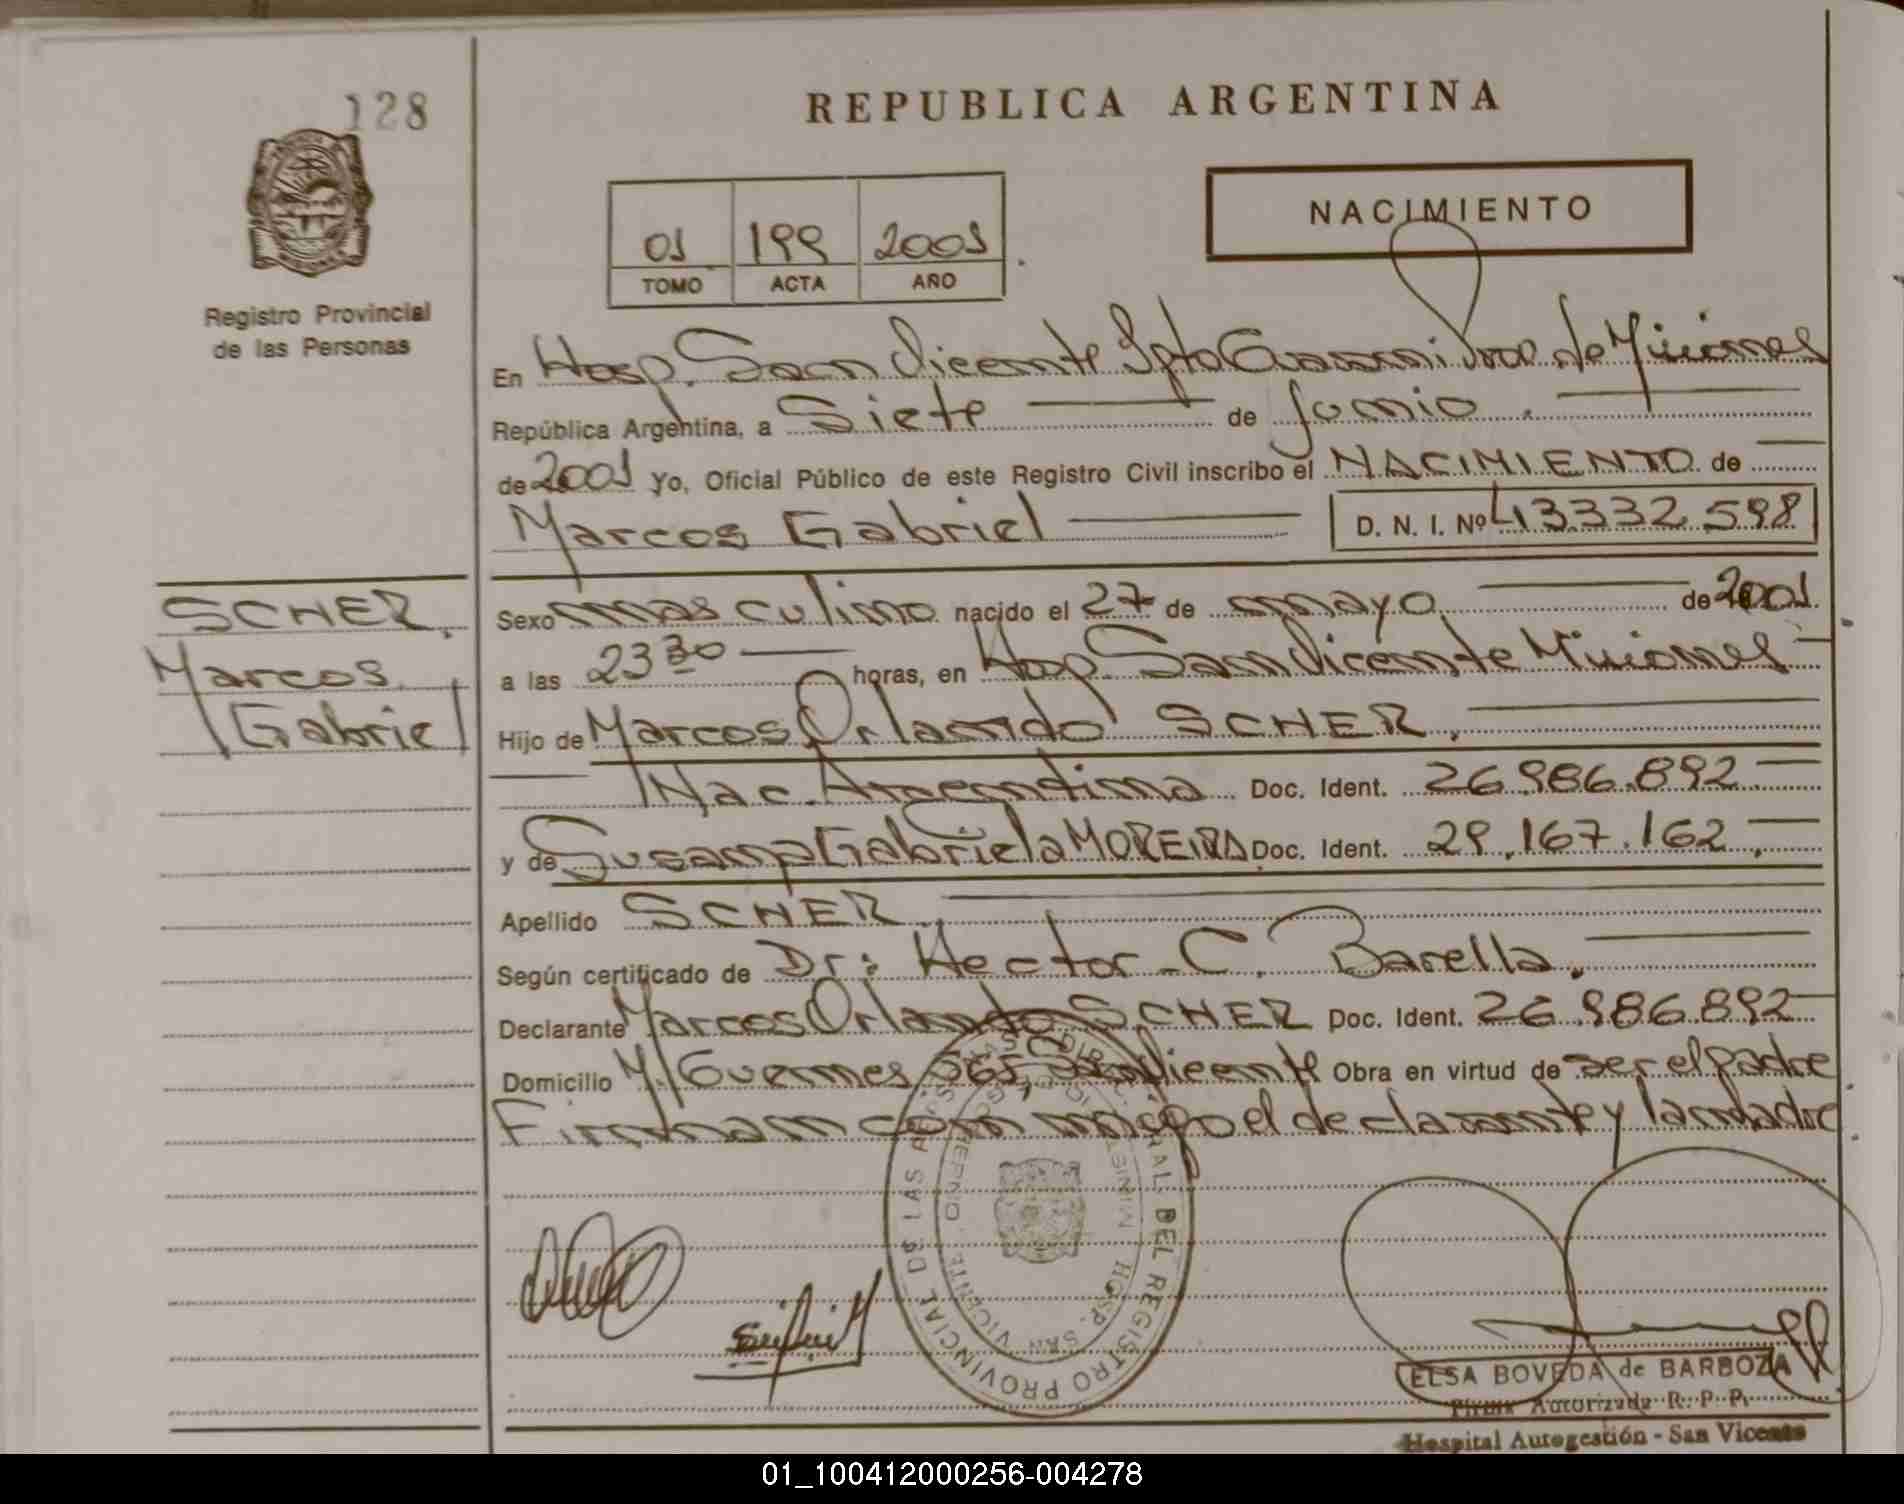 128
REPUBLICA ARGENTINA
01 199 2001
TOMO ACTA AÑO
NACIMIENTO
Registro Provincial
de las Personas
En Hosp. San Vicente Dpto Guarani Prov. de Misiones
República Argentina, a Siete de Junio.
de 2001 Yo, Oficial Público de este Registro Civil inscribo el NACIMIENTO de
Marcos Gabriel D. N. I. Nº 43332.598
SCHER.
Marcos
Gabriel
Sexo masculino nacido el 27 de mayo de 2001.
a las 23 30 horas, en Hosp. San Vicente Misiones
Hijo de Marcos Orlando SCHER.
Nac. Argentina Doc. Ident. 26.986.892
y de Susana Gabriela MOREIRA Doc. Ident. 29.167.162.
Apellido SCHER.
Según certificado de Dr: Hector C. Barella.
Declarante Marcos Orlando SCHER Doc. Ident. 26.986.892
Domicilio M/Guemes 565, San Vicente Obra en virtud de ser el padre
Firman con migo el declarante y la madre
PROVINCIAL DE LAS
DEL REGISTRO PROVINCIAL
HOSP. SAN VICENTE
ELSA BOVEDA de BARBOZA
Firma Autorizada R. P. P.
Hospital Autogestión - San Vicente
01_100412000256-004278